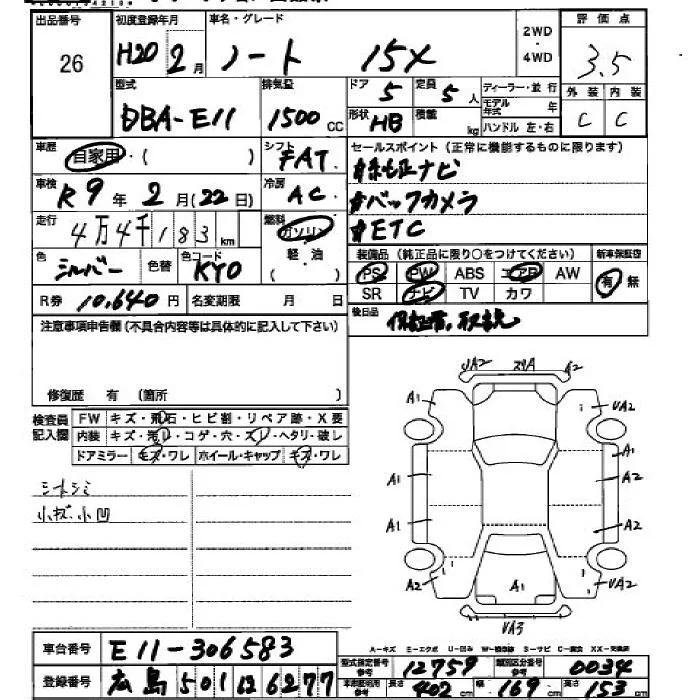 出品番号 初度登録年月 車名・グレード 2WD・4WD 評価点
26 H20年2月 ノート 15X 3.5
型式 排気量 ドア 定員 ディーラー・並行 外装 内装
DBA-E11 1500CC 5 5人 モデル年式 年 C C
形状 HB 積載 kg ハンドル 左・右
車歴 自家用・( ) シフト FAT セールスポイント(正常に機能するものに限ります)
車検 R9年2月(22日) 冷房 AC #純正ナビ
#バックカメラ
走行 4万4千183km 燃料 ガソリン・軽油 #ETC
色 シルバー 色替 色コード KY0 装備品(純正品に限り○をつけてください) 新車保証書
PS PW ABS エアB AW 有・無
SR ナビ TV カワ
R券 10,640円 名変期限 月 日 後日品 保証書、取説
注意事項申告欄(不具合内容等は具体的に記入して下さい)
修復歴 有(箇所 )
検査員記入欄 FW キズ・飛石・ヒビ割・リペア跡・X要
内装 キズ・汚レ・コゲ・穴・スレ・ヘタリ・破レ
ドアミラー キズ・ワレ ホイール・キャップ キズ・ワレ
シートシミ
小キズ、小凹
UA2 A2
A1 UA2
A1 A1
A2
A1 A2
A2 A1 UA2
UA3
A-キズ E-エクボ U-凹み W-補修跡 S-サビ C-腐食 XX-交換済
車台番号 E11-306583
登録番号 広島 501 6277
型式指定番号 参考 12759 類別区分番号 参考 0034
長さ 402cm 幅 169cm 高さ 153cm